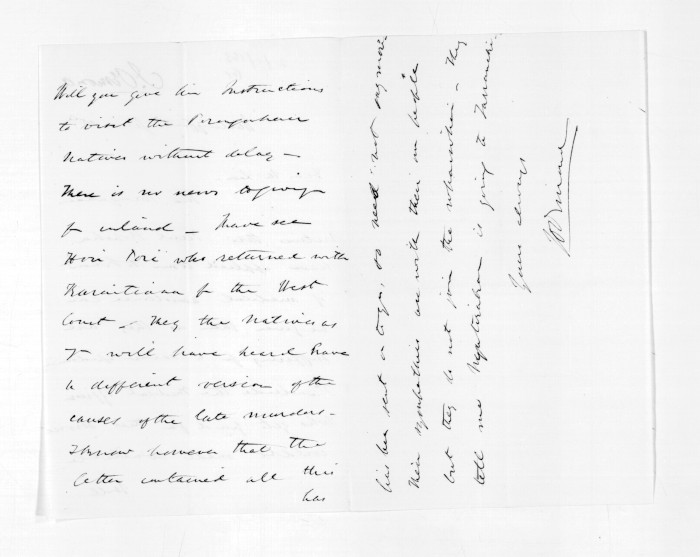 Will you give him Instructions
to visit the Porangahau
Natives without delay —
There is no news to give
fr inland — I have see
Hori Tori who returned with
Karaitiana fr the West
Coast — They the Natives as
will have heard have
a different version of the
causes of the late murders —
I know however that the
letter contained all this
has
has been sent on to you, so need not say more
Their sympathies are with their own people
but they do not join the — They
tell me Ngatiraukawa is going to Taranaki
Yours always